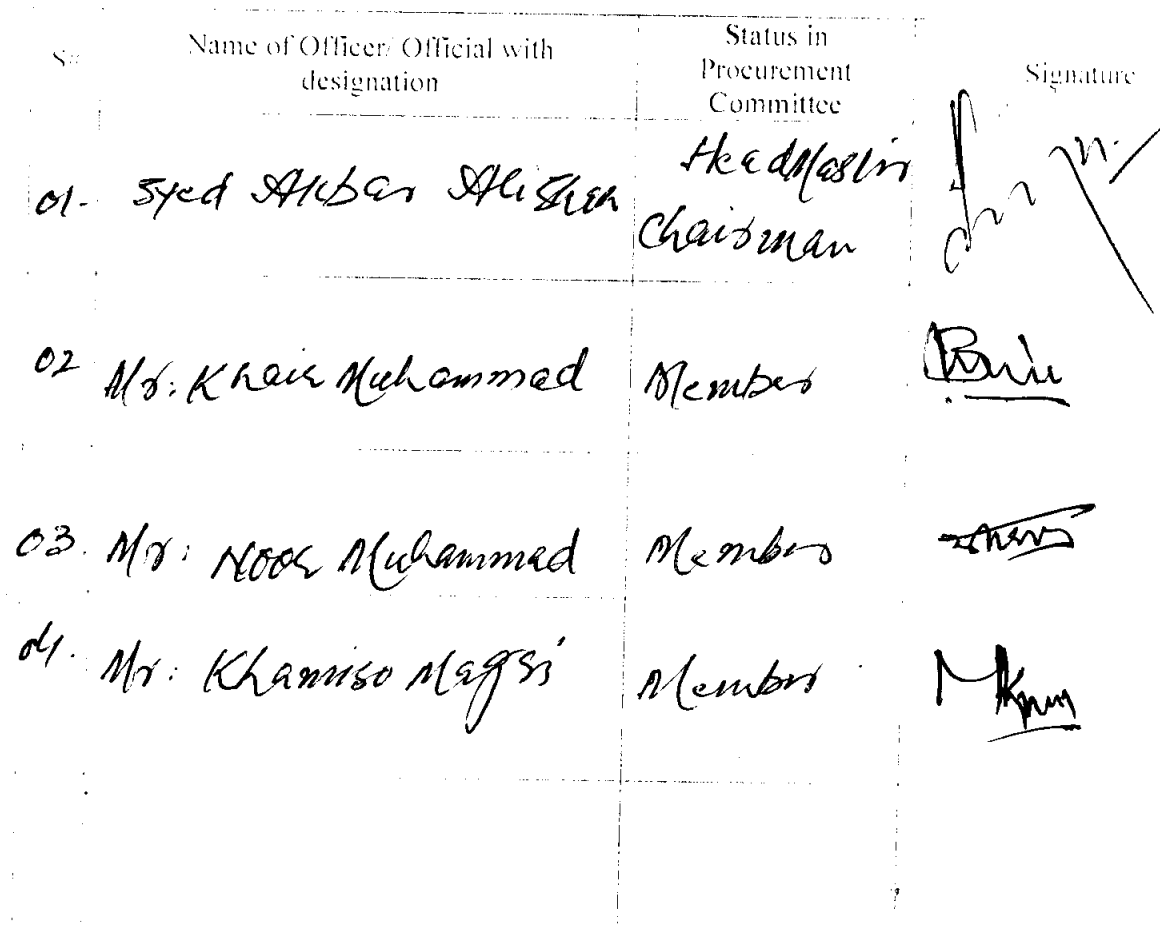 S#
Name of Officer/ Official with
designation
Status in
Procurement
Committee
Signature
01- Syed Akbar Ali Shah
Head Master
Chairman
02 Mr: Khair Muhammad Member
03. Mr: Noor Muhammad Member
04. Mr: Khamiso Magsi Member